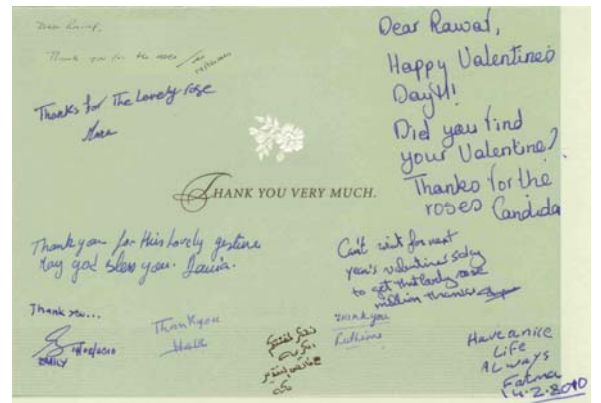 Dear Rawat,
Thank you for the roses
Thanks for The Lovely rose
Dear Rawat,
Happy Valentine's
Day!!!
Did you find
your Valentine?
Thanks for the
roses Candida
THANK YOU VERY MUCH.
Thank you for this lovely gesture
May god bless you.
Can't wait for next
year's valentine's day
to get that lovely rose
million thanks
Thank you...
EMILY
Thank you
Hala
Thank you
Have a nice
Life
ALways
Fatma